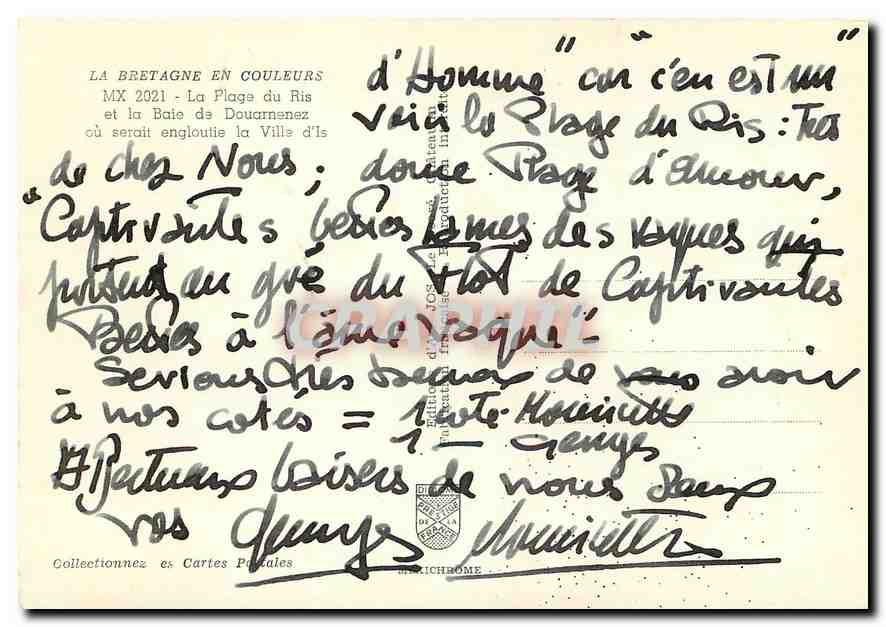 LA BRETAGNE EN COULEURS
MX 2021 - La Plage du Ris
et la Baie de Douarnenez
où serait engloutie la Ville d'Is
d'Homme" car c'en est un"
voici la Plage du Ris : Tres
"de chez Nous ; douce Plage d'Amour,
Captivantes belles lames des vagues qui
portent, au gré du Flot de Captivantes
Belles à l'âme vague"-
Serions très heureux de vous avoir
à nos cotés = 1 coté Mouricette
1 — Georges
Affectueux baisers de nous Deux
vos Georges Mouricette
Editions d'Art JOS Le Doaré, Châteaulin
Fabrication française - Reproduction interdite
CPAPHIL
PRESTIGE
DE LA
FRANCE
Collectionnez es Cartes Postales
MEXICHROME